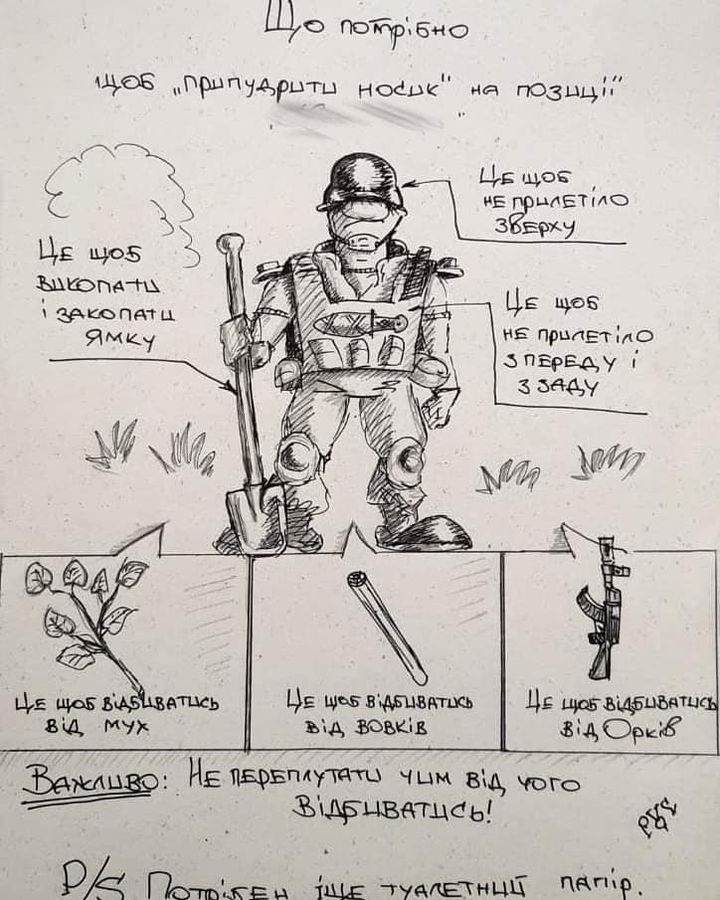 Що потрібно
щоб „припудрити носик" на позиції"
Це щоб
не прилетіло
зверху
Це щоб
викопати
і закопати
ямку
Це щоб
не прилетіло
з переду і
з заду
Це щоб відбиватись
від мух
Це щоб відбиватись
від вовків
Це щоб відбиватись
від Орків
Важливо: Не переплутати чим від чого
відбиватись!
P/S Потрібен іще туалетний папір.